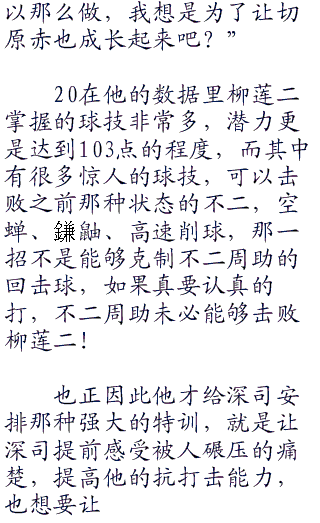 以那么做，我想是为了让切
原赤也成长起来吧？”
20在他的数据里柳莲二
掌握的球技非常多，潜力更
是达到103点的程度，而其中
有很多惊人的球技，可以击
败之前那种状态的不二，空
蝉、鎌鼬、高速削球，那一
招不是能够克制不二周助的
回击球，如果真要认真的
打，不二周助未必能够击败
柳莲二！
也正因此他才给深司安
排那种强大的特训，就是让
深司提前感受被人碾压的痛
楚，提高他的抗打击能力，
也想要让